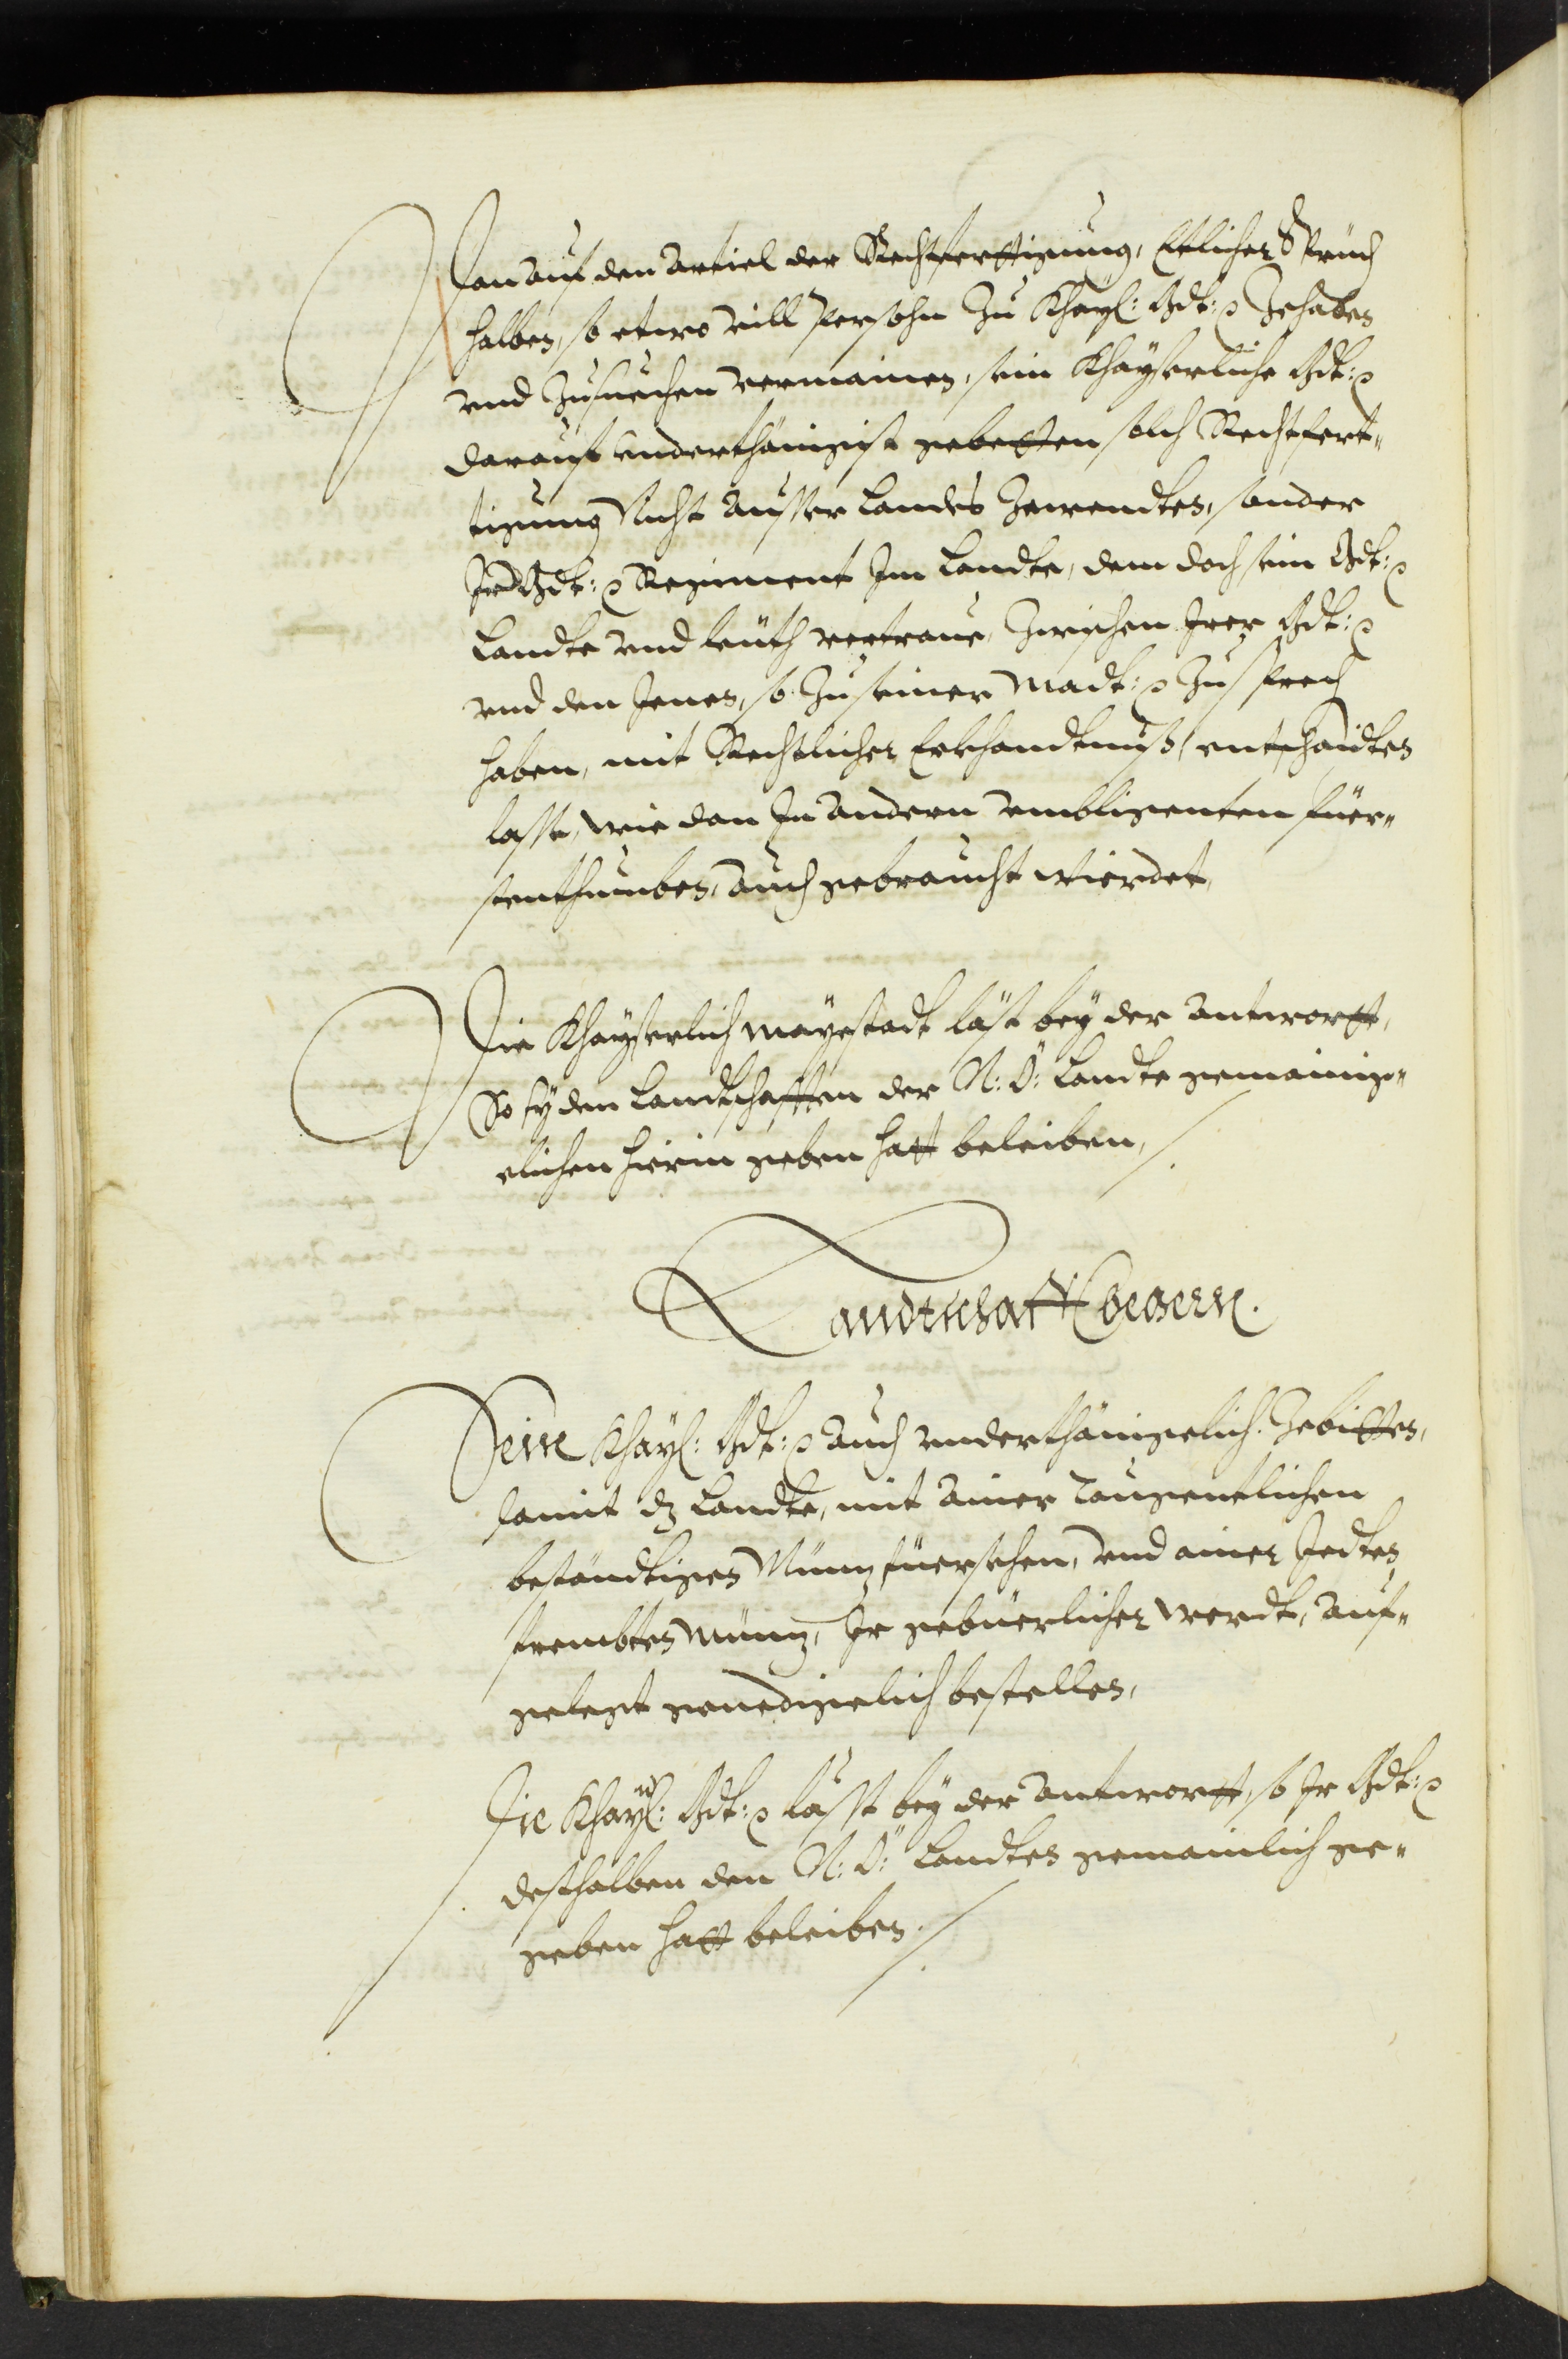 Dan auf den articl der Rechtferttigung, Etlicher Sprüch
halben, so etwo vill Persohn zu Khayl: Mt: Zehaben
vnd zusuechen vermainen, sein Khayserliche Mt:
darauf vnderthänigist gebetten solch Rechtfert„
tigung Nicht ausser Landes Zewendten, sonder
Ir Mt: Regiment Im Landte, dem doch sein Mt:
Landte vnd leüth vertraue, Zwischen Irer Mt:
vnd den Jenen, so zu seiner Madt: zu sprech
haben, mit Rechtlicher Erkhandtnuß, entschaidten
lasse, wie dan In andern vmbligenten Füer„
stenthumben, auch gebraucht wierdet,
Die Khayserlich Mayestadt läst bey der antwortt,
So sy den Landtschafften der N: Ö: Landte gemainig„
elichen hierin geben hatt beleiben,
Landtschafft begern.
Seine Khayl: Mt: auch vnderthänigelich Zebitten,
damit dz Landte, mit ainer taugentlichen
beständtigen Münz füersehen, vnd ainer Jedten
frembten Münz, Ir gebüerlicher werdt, auf„
gelegt genedigelich bestellen,
Die Khayl: Mt: lässt bey der antwortt, so Ir Mt:
desthalben den N: Ö: Landten gemainlich ge„
geben hatt beleiben.